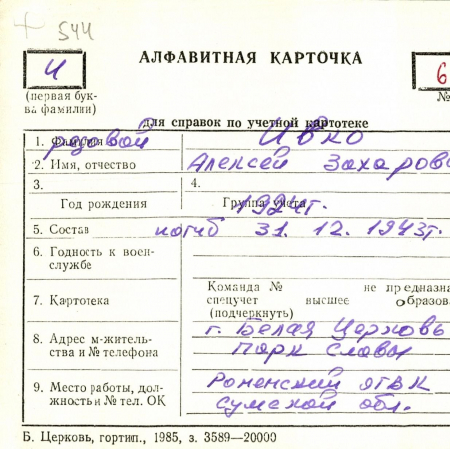 544
АЛФАВИТНАЯ КАРТОЧКА
И
6
(первая бук-
ва фамилии)
№
для справок по учетной картотеке
1. Фамилия рядовой Ивко
2. Имя, отчество Алексей Захаров
3.
4.
Год рождения
Группа учета 1924г.
5. Состав погиб 31. 12. 1943г.
6. Годность к воен-
службе
7. Картотека
Команда № не предназна
спецучет высшее образова
(подчеркнуть)
8. Адрес м-житель-
ства и № телефона
г. Белая Церковь
Парк Славы
9. Место работы, дол-
жность и № тел. ОК
Роменский ОГВК
Сумской обл.
Б. Церковь, гортип., 1985, з. 3589—20000